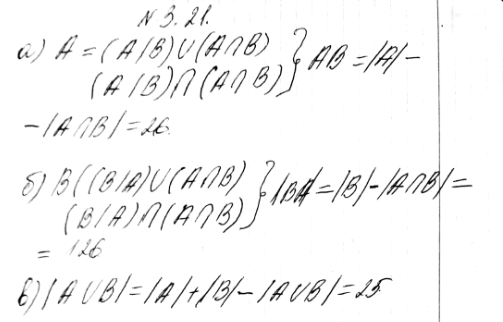 № 3.21.
а) A = (A/B)∪(A∩B)
(A/B)∩(A∩B) } AB = |A| –
– |A∩B| = 26
б) B((B/A)∪(A∩B)
(B/A)∩(A∩B) } |BA| = |B| – |A∩B| =
= 126
в) |A∪B| = |A| + |B| – |A∪B| = 25